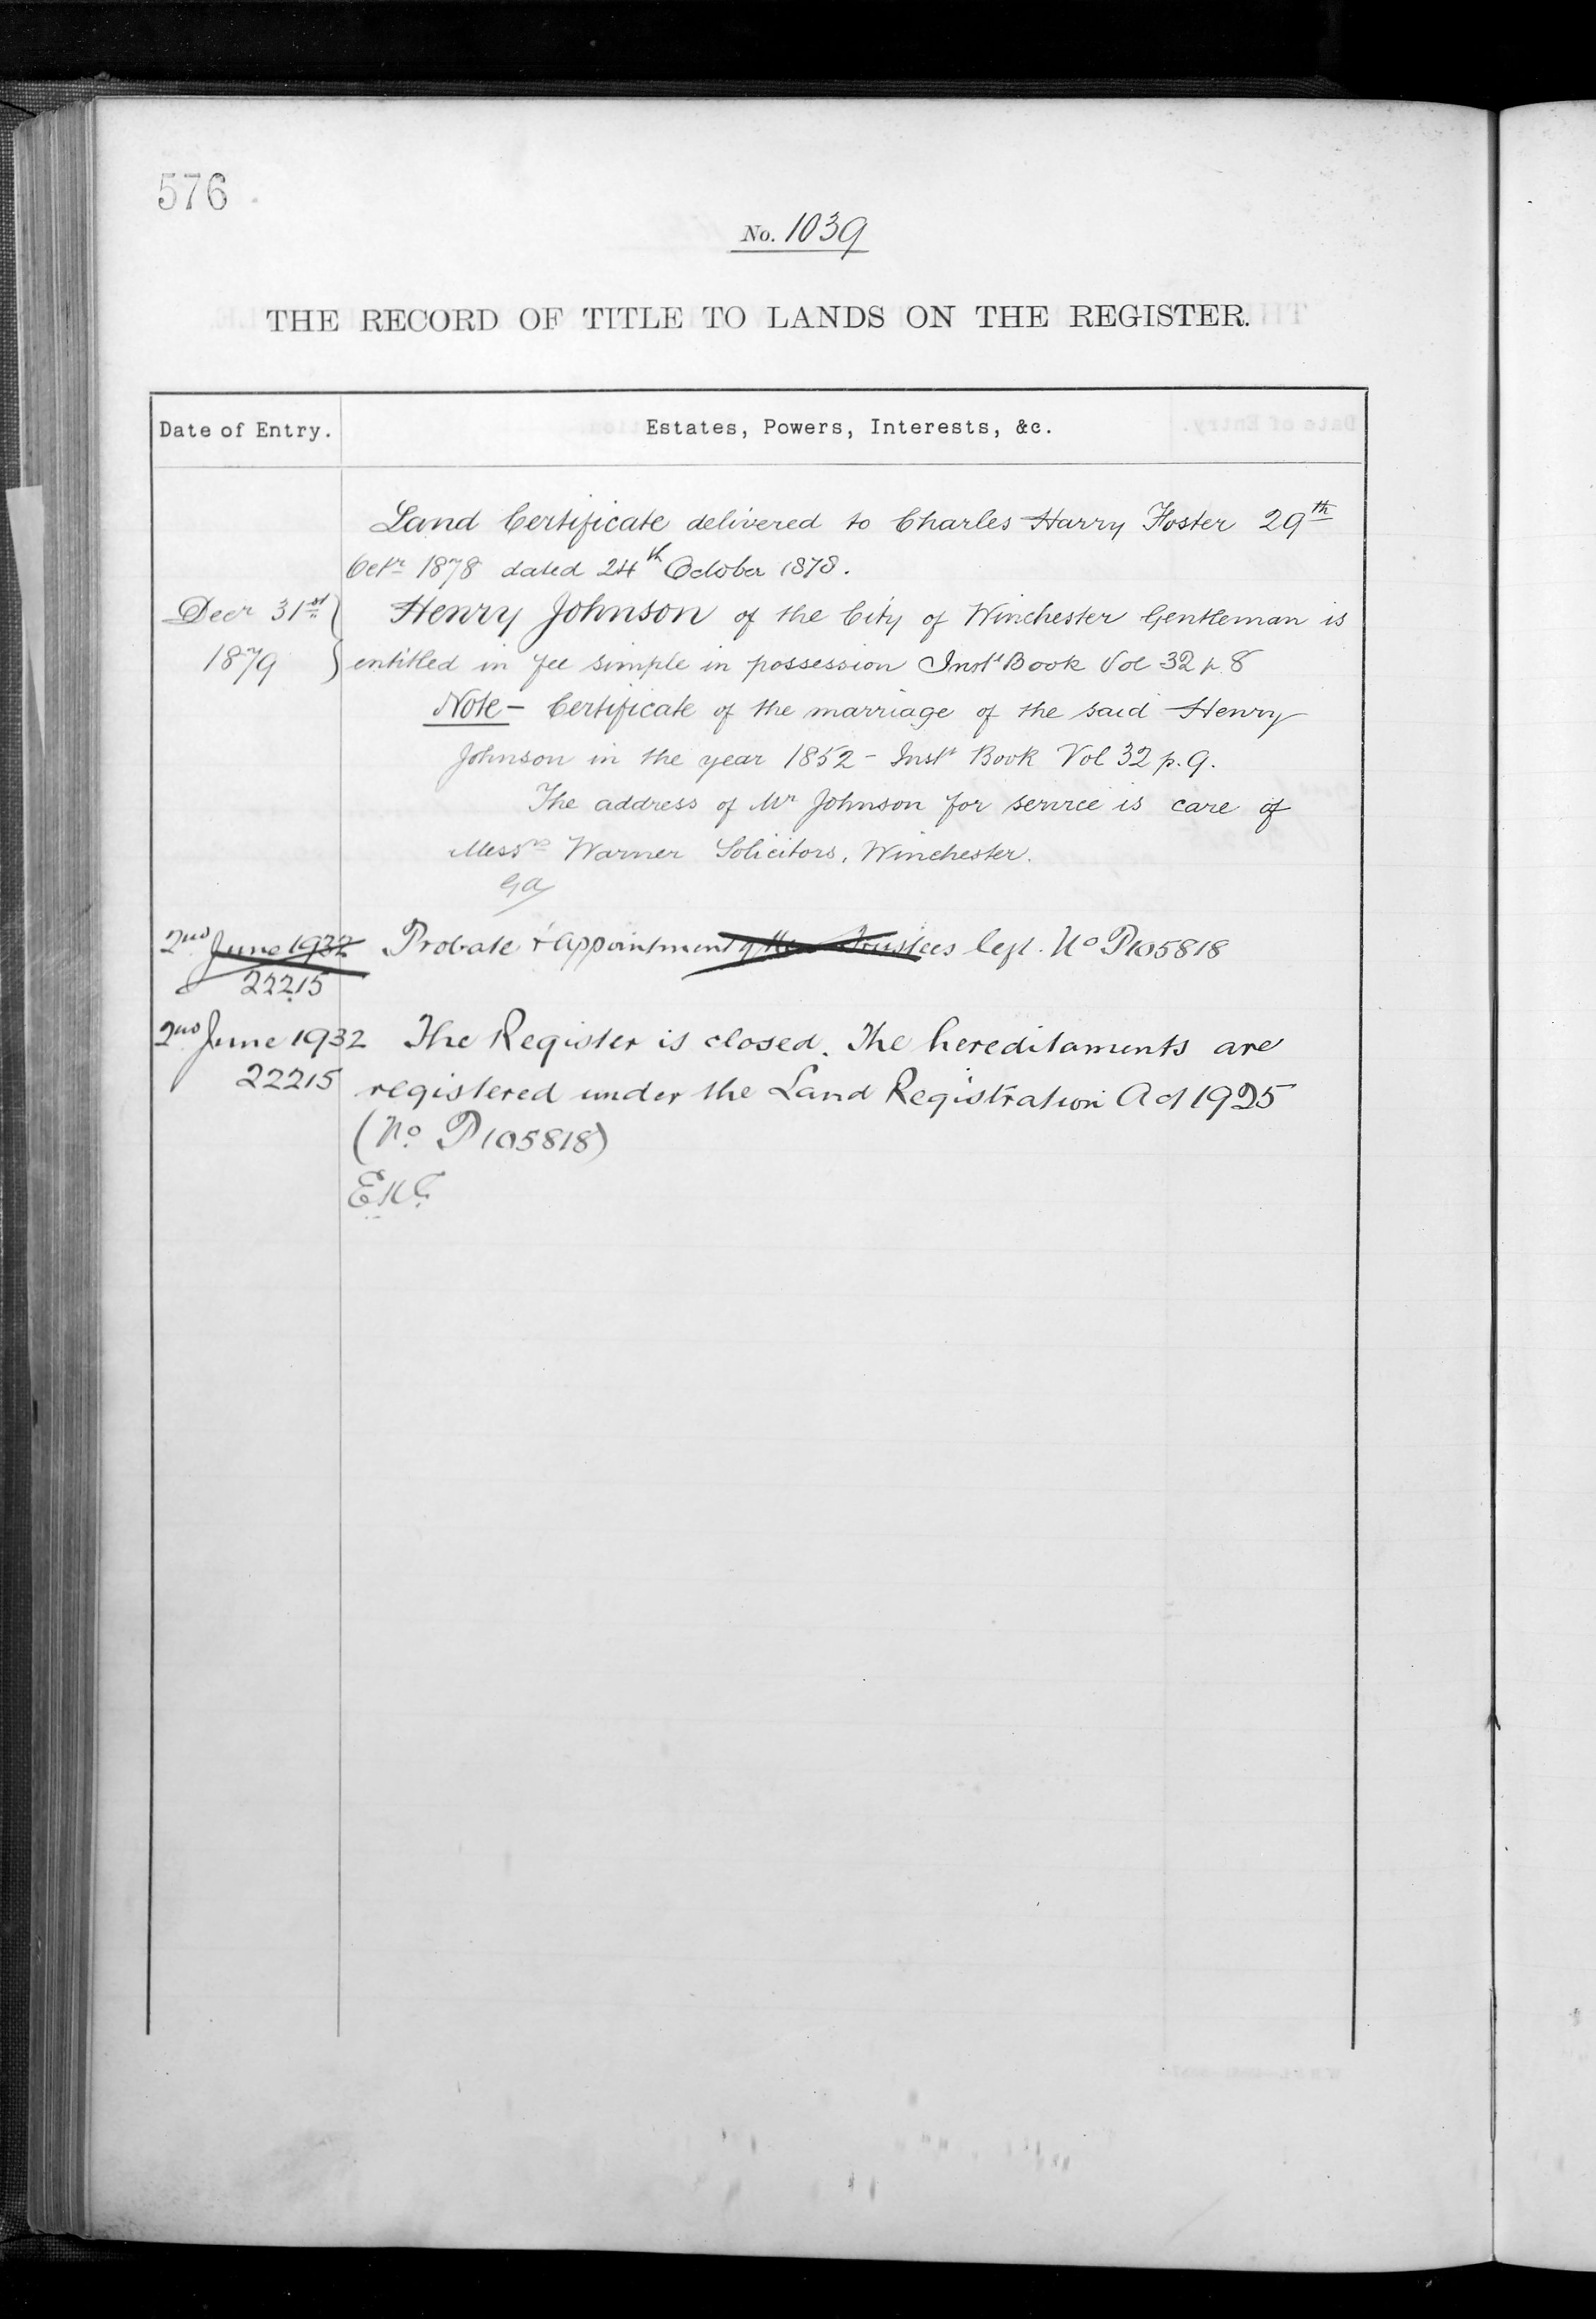 576
No. 1039
THE RECORD OF TITLE TO LANDS ON THE REGISTER.
Date of Entry. Estates, Powers, Interests, &c.
Land Certificate delivered to Charles Harry Foster 29th
Octr 1878 dated 24th October 1878.
Decr 31st Henry Johnson of the City of Winchester Gentleman is
1879 entitled in fee simple in possession Inst Book Vol 32 p. 8
Note - Certificate of the marriage of the said Henry
Johnson in the year 1852 - Inst Book Vol 32 p. 9.
The address of Mr Johnson for service is care of
Messrs Warner Solicitors, Winchester.
GA
2nd June 1932 Probate & Appointment of New Trustees Regd. No P105818
22215
2nd June 1932 The Register is closed. The hereditaments are
22215 registered under the Land Registration Act 1925
(No P105818)